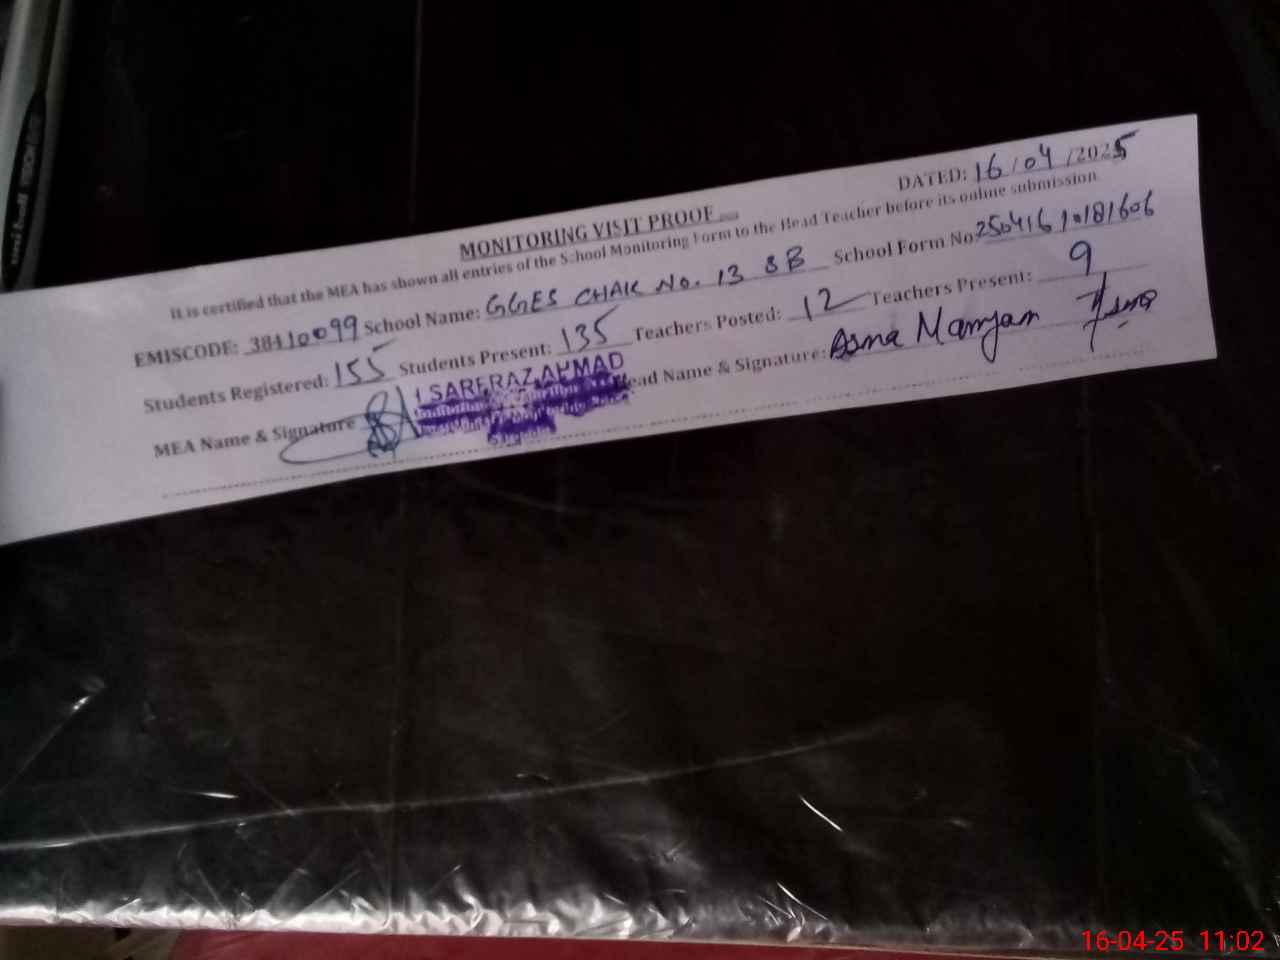 DATED: 16/04/2025
MONITORING VISIT PROOF
It is certified that the MEA has shown all entries of the School Monitoring Form to the Head Teacher before its online submission
EMISCODE: 38410099 School Name: GGES CHAK No. 13 SB School Form No: 25041610181606
Students Registered: 155 Students Present: 135 Teachers Posted: 12 Teachers Present: 9
MEA Name & Signature SARFRAZ AHMAD Head Name & Signature: Asma Maryam Asma
uni-ball
16-04-25 11:02